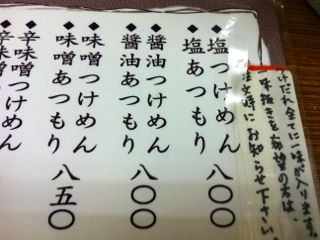 けだれ全てに一味が入ります。
一味抜きを希望の方は、
注文時にお知らせ下さい。
◆塩つけめん
◆塩あつもり
八〇〇
◆醤油つけめん
◆醤油あつもり
八〇〇
◆味噌つけめん
◆味噌あつもり
八五〇
◆辛味噌つけめん
辛味噌あつもり